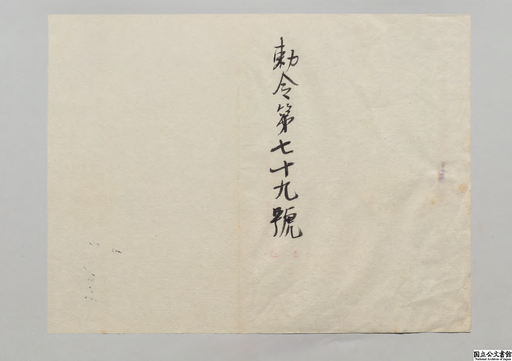 勅令第七十九號
国立公文書館
National Archives of Japan